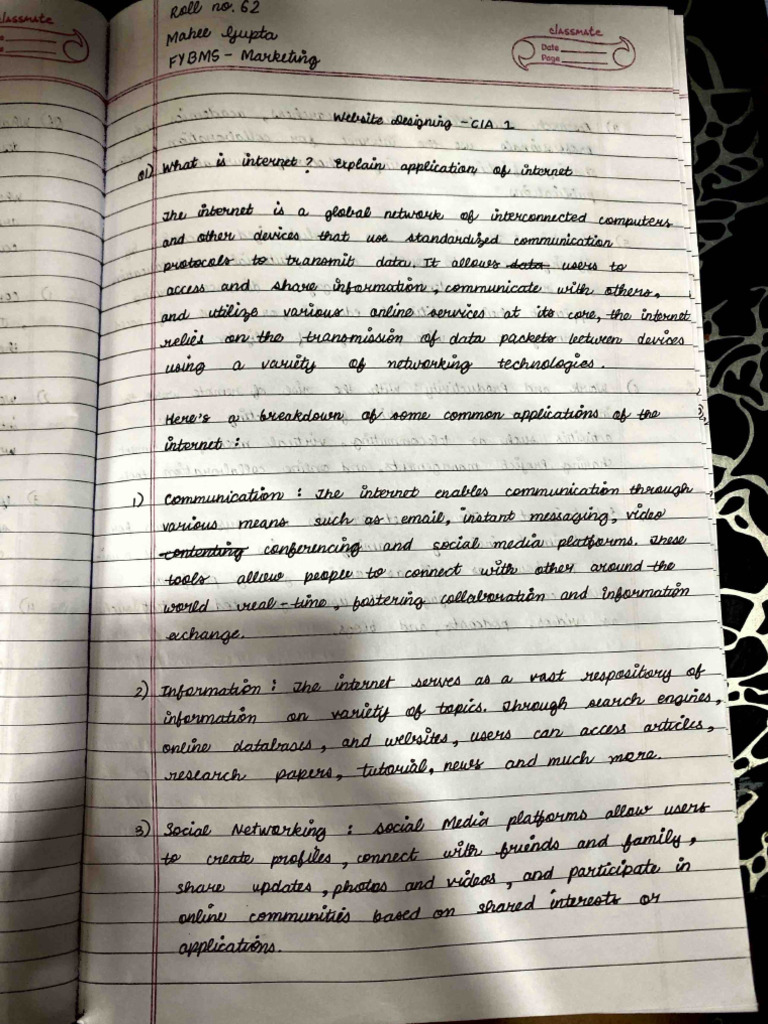 classmate
Roll no. 62
Mahee Gupta
FYBMS - Marketing
classmate
Date
Page
Website Designing - CIA 1
Q1) What is internet? Explain application of internet
The internet is a global network of interconnected computers
and other devices that use standardized communication
protocols to transmit data. It allows data users to
access and share information, communicate with others,
and utilize various online services at its core, the internet
relies on the transmission of data packets between devices
using a variety of networking technologies.
Here's a breakdown of some common applications of the
internet:
1) Communication: The internet enables communication through
various means such as email, instant messaging, video
contenting conferencing and social media platforms. These
tools allow people to connect with other around the
world real-time, fostering collaboration and information
exchange.
2) Information: The internet serves as a vast respository of
information on variety of topics. Through search engines,
online databases, and websites, users can access articles,
research papers, tutorial, news and much more.
3) Social Networking: Social Media platforms allow users
to create profiles, connect with friends and family,
share updates, photos and videos, and participate in
online communities based on shared interests or
applications.